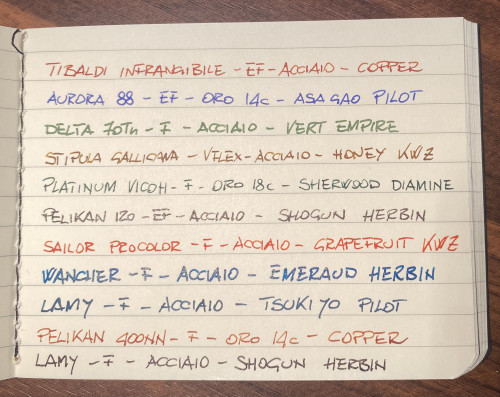 TIBALDI INFRANGIBILE - EF - ACCIAIO - COPPER
AURORA 88 - EF - ORO 14c - ASAGAO PILOT
DELTA 70Th - F - ACCIAIO - VERT EMPIRE
STIPULA GALLICANA - VFLEX - ACCIAIO - HONEY KWZ
PLATINUM VICOH - F - ORO 18c - SHERWOOD DIAMINE
PELIKAN 120 - EF - ACCIAIO - SHOGUN HERBIN
SAILOR PROCOLOR - F - ACCIAIO - GRAPEFRUIT KWZ
WANCHER - F - ACCIAIO - EMERAUD HERBIN
LAMY - F - ACCIAIO - TSUKIYO PILOT
PELIKAN 400NN - F - ORO 14c - COPPER
LAMY - F - ACCIAIO - SHOGUN HERBIN